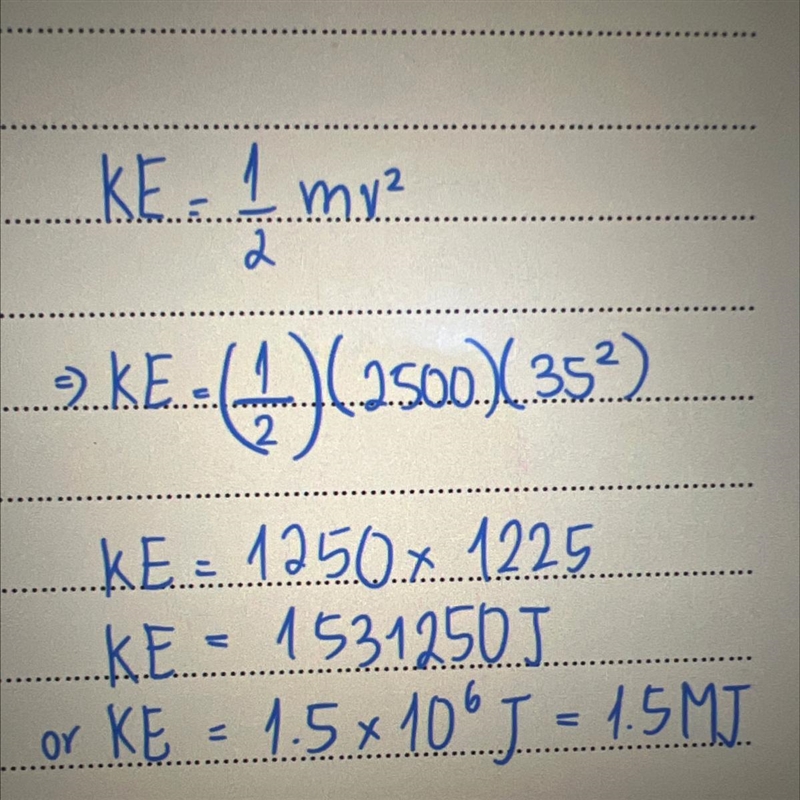 KE = 1/2 mv²
⇒ KE = (1/2)(2500)(35²)
KE = 1250 × 1225
KE = 1531250J
or KE = 1.5 × 10⁶ J = 1.5MJ